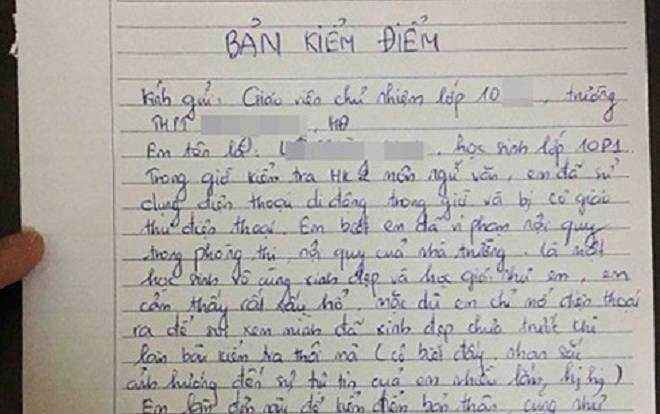 BẢN KIỂM ĐIỂM
Kính gửi: Giáo viên chủ nhiệm lớp 10 , trường
THPT , HĐ
Em tên là: L , học sinh lớp 10P1
Trong giờ kiểm tra HK 2 môn ngữ văn, em đã sử
dụng điện thoại di động trong giờ và bị cô giáo
thu điện thoại. Em biết em đã vi phạm nội quy
trong phòng thi, nội quy của nhà trường. Là một
học sinh vô cùng xinh đẹp và học giỏi như em, em
cảm thấy rất xấu hổ, mặc dù em chỉ mở điện thoại
ra để soi xem mình đã xinh đẹp chưa trước khi
làm bài kiểm tra thôi mà (cô biết đấy, nhan sắc
ảnh hưởng đến sự tự tin của em nhiều lắm, hị hị)
Em bản này để kiểm điểm bản thân cũng như